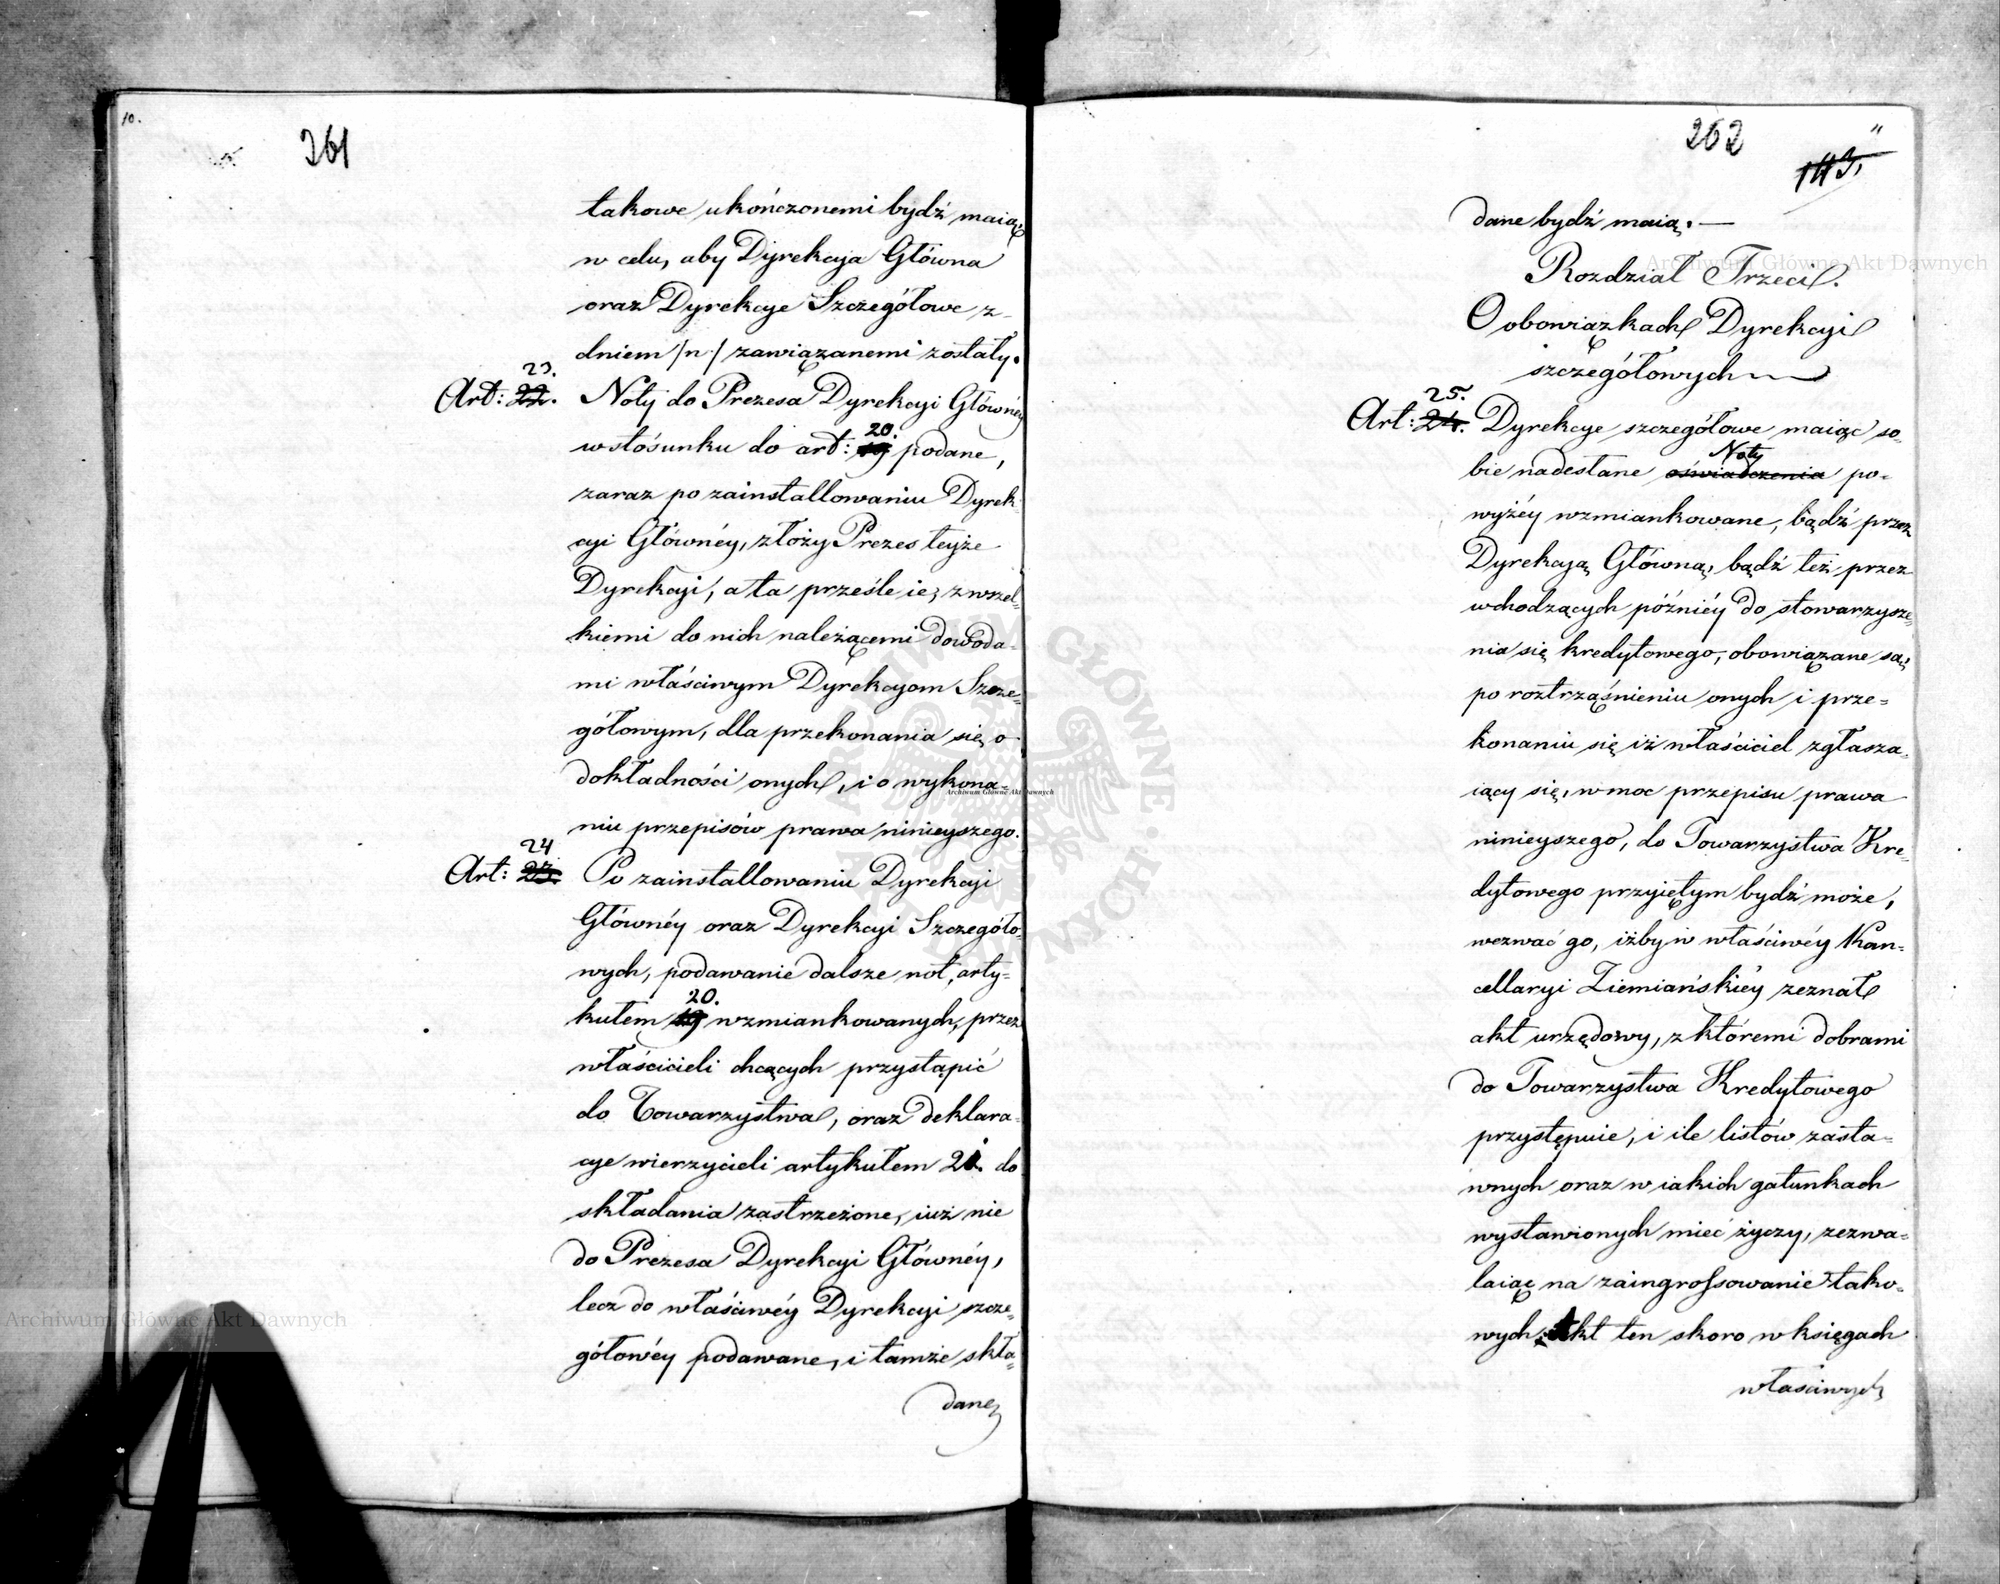 10.
261
takowe ukończonemi bydź maią,
w celu, aby Dyrekcyia Główna
oraz Dyrekcye Szczegółowe z-
dniem /n/ zawiązanemi zostały.
23.
Art: 22. Noty do Prezesa Dyrekcyi Głównéy
w stósunku do art: 20. podane,
zaraz po zainstallowaniu Dyrek-
cyi Głównéy, złoży Prezes teyże
Dyrekcyi, a ta prześle ie, z wszel-
kiemi do nich należącemi dowoda-
mi właściwym Dyrekcyom Szcze-
gółowym, dla przekonania się o
dokładności onych, i o wykona-
niu przepisów prawa ninieyszego.
24
Art: 23. Po zainstallowaniu Dyrekcyi
Głównéy oraz Dyrekcyi Szczegóło-
wych, podawanie dalsze not, arty-
20.
kułem 19 wzmiankowanych, przez
właścicieli chcących przystąpić
do Towarzystwa, oraz deklara-
cye wierzycieli artykułem 21. do
składania zastrzeżone, iuż nie
do Prezesa Dyrekcyi Głównéy,
lecz do właściwéy Dyrekcyi szcze-
gółowéy podawane, i tamże skła-
dane
262
11
143.
dane bydź maią. —
Rozdział Trzeci.
O obowiązkach Dyrekcyi
szczegółowych
25.
Art: 24. Dyrekcye szczegółowe maiąc so-
Noty
bie nadesłane oświadczenia po-
wyżéy wzmiankowane, bądź przez
Dyrekcyą Główną, bądź też przez
wchodzących późniéy do stowarzysze-
nia się kredytowego, obowiązane są,
po roztrząśnieniu onych i prze-
konaniu się iż właściciel zgłasza-
iący się, w moc przepisu prawa
ninieyszego, do Towarzystwa Kre-
dytowego przyiętym bydź może,
wezwać go, iżby w właściwéy Kan-
cellaryi Ziemiańskiéy zeznał
akt urzędowy, z któremi dobrami
do Towarzystwa Kredytowego
przystępuie, i ile listów zasta-
wnych oraz w iakich gatunkach
wystawionych mieć życzy, zezwa-
laiąc na zaingrossowanie tako-
wych. Akt ten skoro w księgach
właściwych
Archiwum Główne Akt Dawnych
Archiwum Główne Akt Dawnych
Archiwum Główne Akt Dawnych